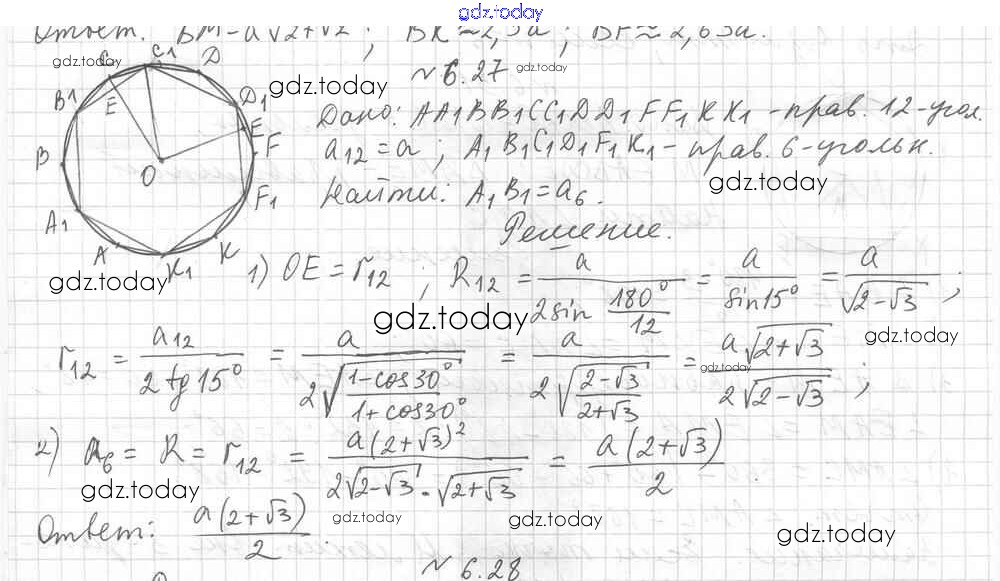 gdz.today
Ответ. BM = a√2+√2 ; BK ≈ 2,5a ; BF ≈ 2,63a.
№ 6.27
Дано: AA₁BB₁CC₁DD₁FF₁KK₁ - прав. 12-угол.
a₁₂ = a ; A₁B₁C₁D₁F₁K₁ - прав. 6-угольк.
Найти: A₁B₁ = a₆.
Решение.
1) OE = r₁₂ ; R₁₂ = a / (2sin 180°/12) = a / sin15° = a / √(2-√3) ;
r₁₂ = a₁₂ / (2tg15°) = a / (2√((1-cos30°)/(1+cos30°))) = a / (2√((2-√3)/(2+√3))) = a√(2+√3) / (2√(2-√3)) ;
2) a₆ = R = r₁₂ = a(2+√3)² / (2√(2-√3)·√(2+√3)) = a(2+√3) / 2
Ответ: a(2+√3) / 2
№ 6.28
C
C₁
D
B1
E
D1
E
F
B
O
F1
A1
A
K1
K
gdz.today
gdz.today
gdz.today
gdz.today
gdz.today
gdz.today
gdz.today
gdz.today
gdz.today
gdz.today
gdz.today
gdz.today